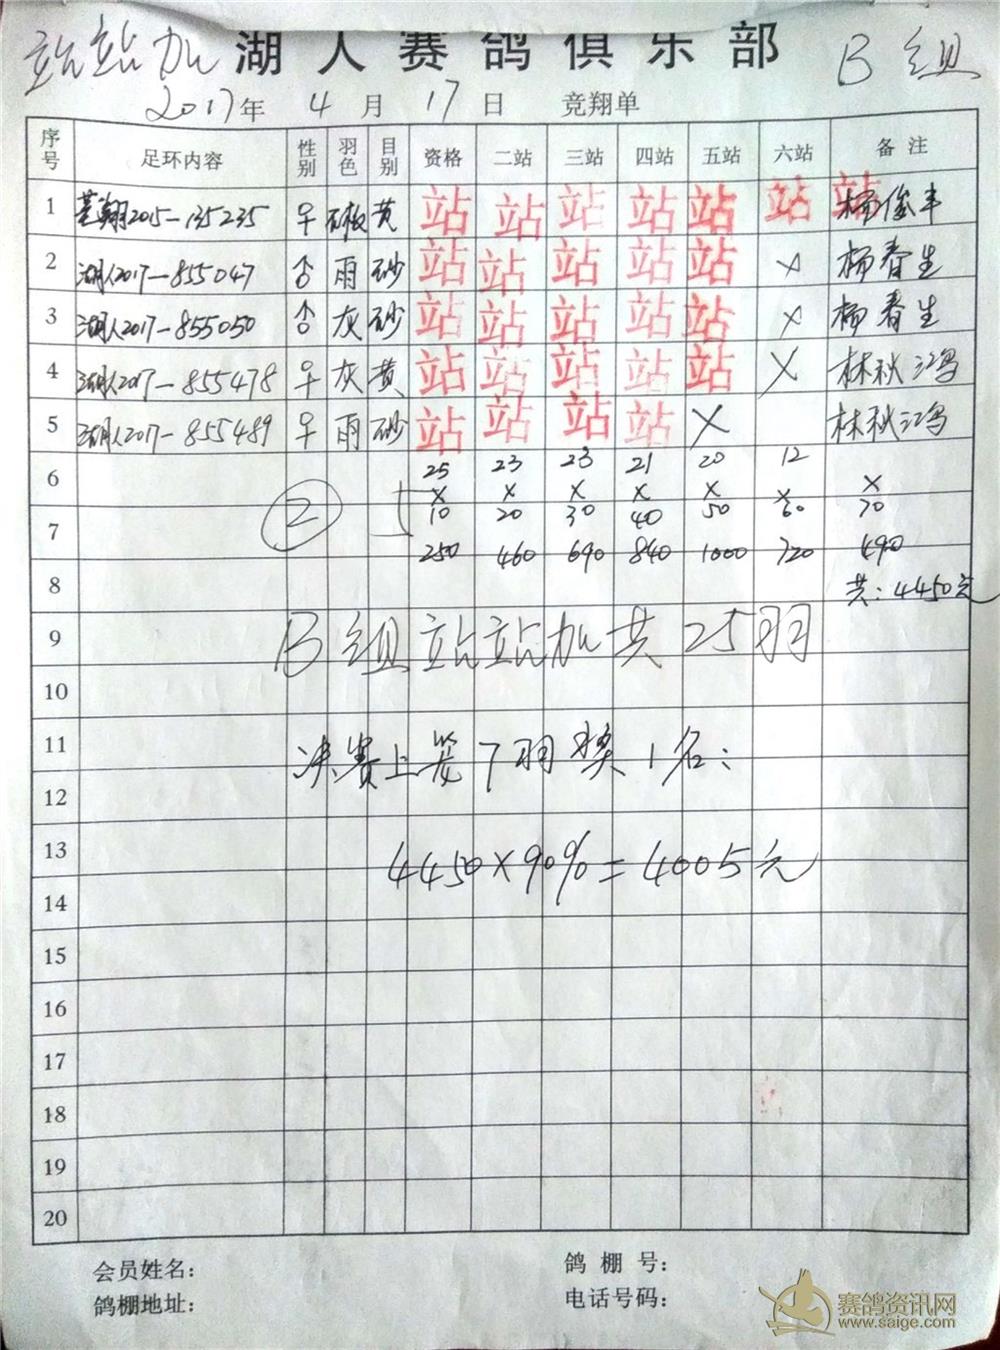 站站加 湖人赛鸽俱乐部 B组
2017年 4月17日 竞翔单
序号 足环内容 性别 羽色 目别 资格 二站 三站 四站 五站 六站 备注
1 2015-135235 ♀ 黄 站 站 站 站 站 站 站 杨俊丰
2 湖人2017-855047 ♂ 雨 砂 站 站 站 站 站 × 杨春生
3 湖人2017-855050 ♂ 灰 砂 站 站 站 站 站 × 杨春生
4 湖人2017-855478 ♀ 灰 黄 站 站 站 站 站 × 林秋鸿
5 湖人2017-855489 ♀ 雨 砂 站 站 站 站 × 林秋鸿
6 25 23 23 21 20 12
② 5 × × × × × × ×
7 10 20 30 40 50 60 70
250 460 690 840 1000 720 490
8 共:4450元
9 B组站站加共25羽
10
11 决赛上笼7羽奖1名:
12
13 4450×90%=4005元
14
15
16
17
18
19
20
会员姓名: 鸽棚号:
鸽棚地址: 电话号码:
赛鸽资讯网
www.saige.com